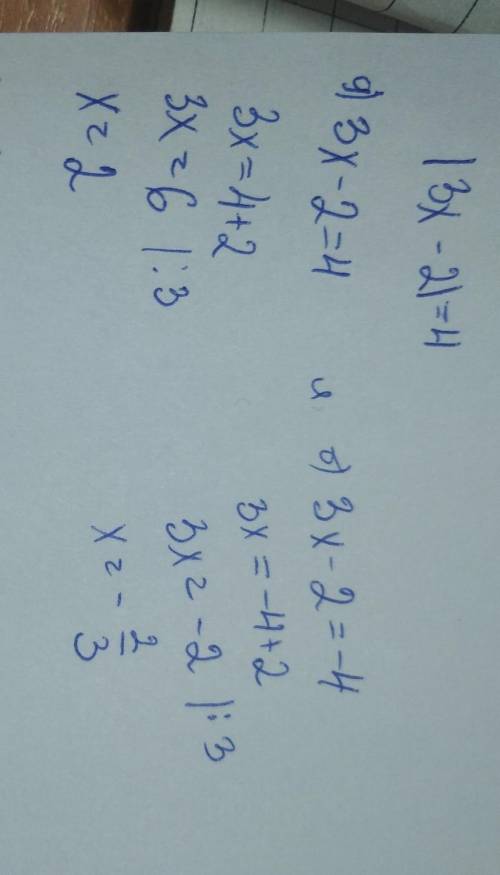 |3x - 2| = 4
а) 3x - 2 = 4
3x = 4 + 2
3x = 6 | : 3
x = 2
и б) 3x - 2 = -4
3x = -4 + 2
3x = -2 | : 3
x = - 2/3